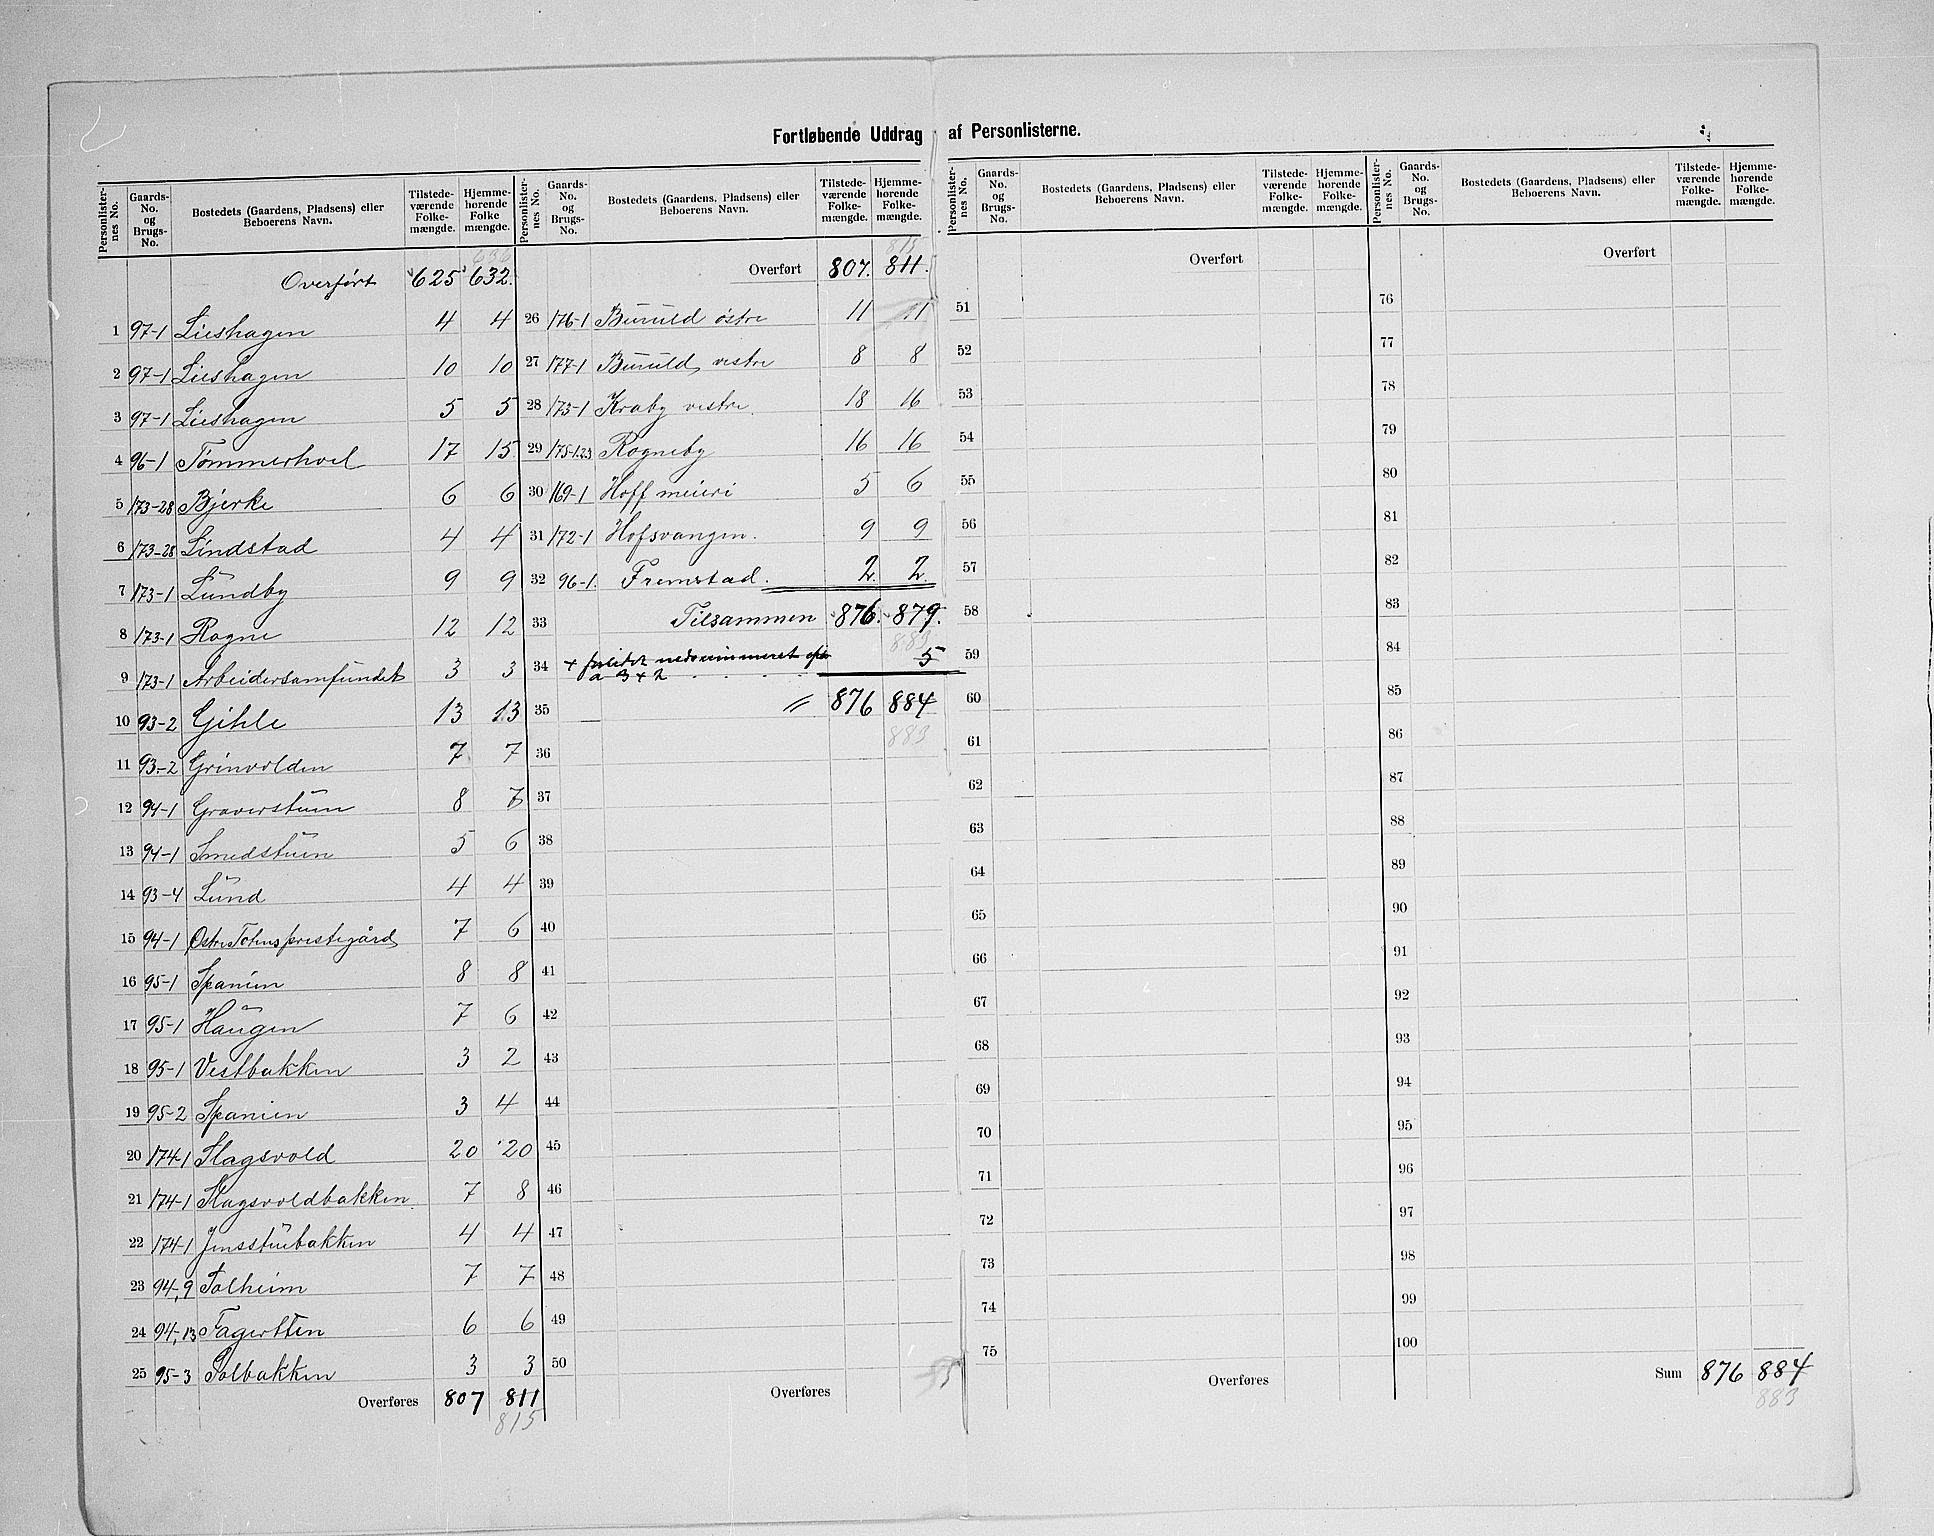 Fortløbende Uddrag af Personlisterne.
Personlister-nes No. Gaards-No. og Brugs-No. Bostedets (Gaardens, Pladsens) eller Beboerens Navn. Tilstede-værende Folke-mængde. Hjemme-hørende Folke mængde.
636
Overført 625 632.
1 97-1 Lieshagen 4 4
2 97-1 Lieshagen 10 10
3 97-1 Lieshagen 5 5
4 96-1 Tømmerhoel 17 15
5 173-28 Bjerke 6 6
6 173-28 Lindstad 4 4
7 173-1 Lundby 9 9
8 173-1 Rogne 12 12
9 173-1 Arbeidersamfundet 3 3
10 93-2 Gihle 13 13
11 93-2 Grinvolden 7 7
12 94-1 Graverstuen 8 7
13 94-1 Smedstuen 5 6
14 93-4 Lund 4 4
15 94-1 Østre Totens prestegård 7 6
16 95-1 Spanien 8 8
17 95-1 Haugen 7 6
18 95-1 Vestbakken 3 2
19 95-2 Spanien 3 4
20 174-1 Flagsvold 20 20
21 174-1 Flagsvoldbakken 7 8
22 174-1 Jensstuebakken 4 4
23 94,9 Solheim 7 7
24 94,13 Fagerlien 6 6
25 95-3 Solbakken 3 3
Overføres 807 811
815
Personlister-nes No. Gaards-No. og Brugs-No. Bostedets (Gaardens, Pladsens) eller Beboerens Navn. Tilstede-værende Folke-mængde. Hjemme-hørende Folke-mængde.
815
Overført 807. 811.
26 176-1 Buruld østre 11 11
27 177-1 Buruld vestre 8 8
28 173-1 Kraby vestre. 18 16
29 175-1.23 Rogneby 16 16
30 169-1 Hoff meieri 5 6
31 172-1 Hofsvangen. 9 9
32 96-1. Fremstad. 2 2.
33 Tilsammen 876. 879.
883
34 + 5
a 3 + 2
35 " 876 884
883
36
37
38
39
40
41
42
43
44
45
46
47
48
49
50
Overføres
Personlister-nes No. Gaards-No. og Brugs-No. Bostedets (Gaardens, Pladsens) eller Beboerens Navn. Tilstede-værende Folke-mængde. Hjemme-hørende Folke-mængde.
Overført
51
52
53
54
55
56
57
58
59
60
61
62
63
64
65
66
67
68
69
70
71
72
73
74
75
Overføres
Personlister-nes No. Gaards-No. og Brugs-No. Bostedets (Gaardens, Pladsens) eller Beboerens Navn. Tilstede-værende Folke-mængde. Hjemme-hørende Folke-mængde.
Overført
76
77
78
79
80
81
82
83
84
85
86
87
88
89
90
91
92
93
94
95
96
97
98
99
100
Sum 876 884
883